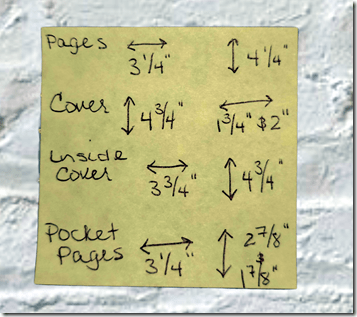 Pages ↔ 3 1/4" ↕ 4 1/4"
Cover ↕ 4 3/4" ↔ 1 3/4" & 2"
Inside
Cover ↔ 3 3/4" ↕ 4 3/4"
Pocket
Pages ↔ 3 1/4" ↕ 2 7/8"
&
1 7/8"